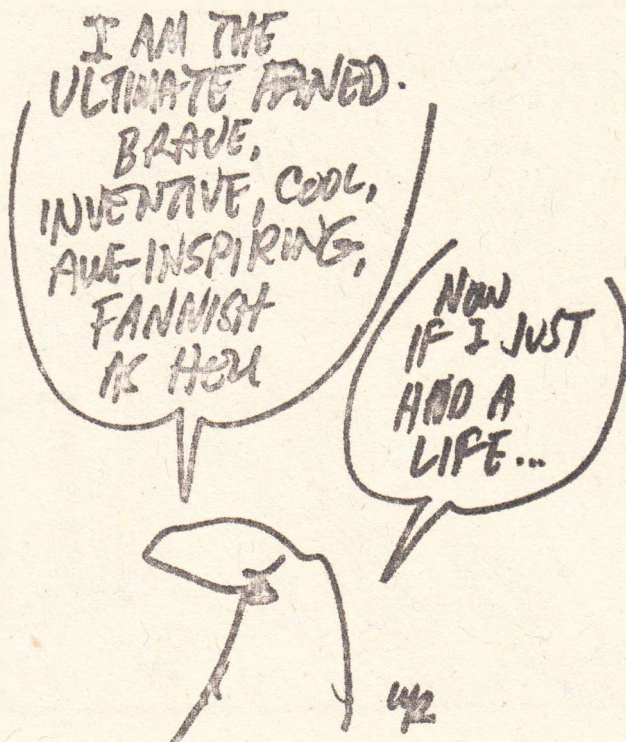 I AM THE
ULTIMATE FANED.
BRAVE,
INVENTIVE, COOL,
AWE-INSPIRING,
FANNISH
AS HELL
NOW
IF I JUST
HAD A
LIFE...